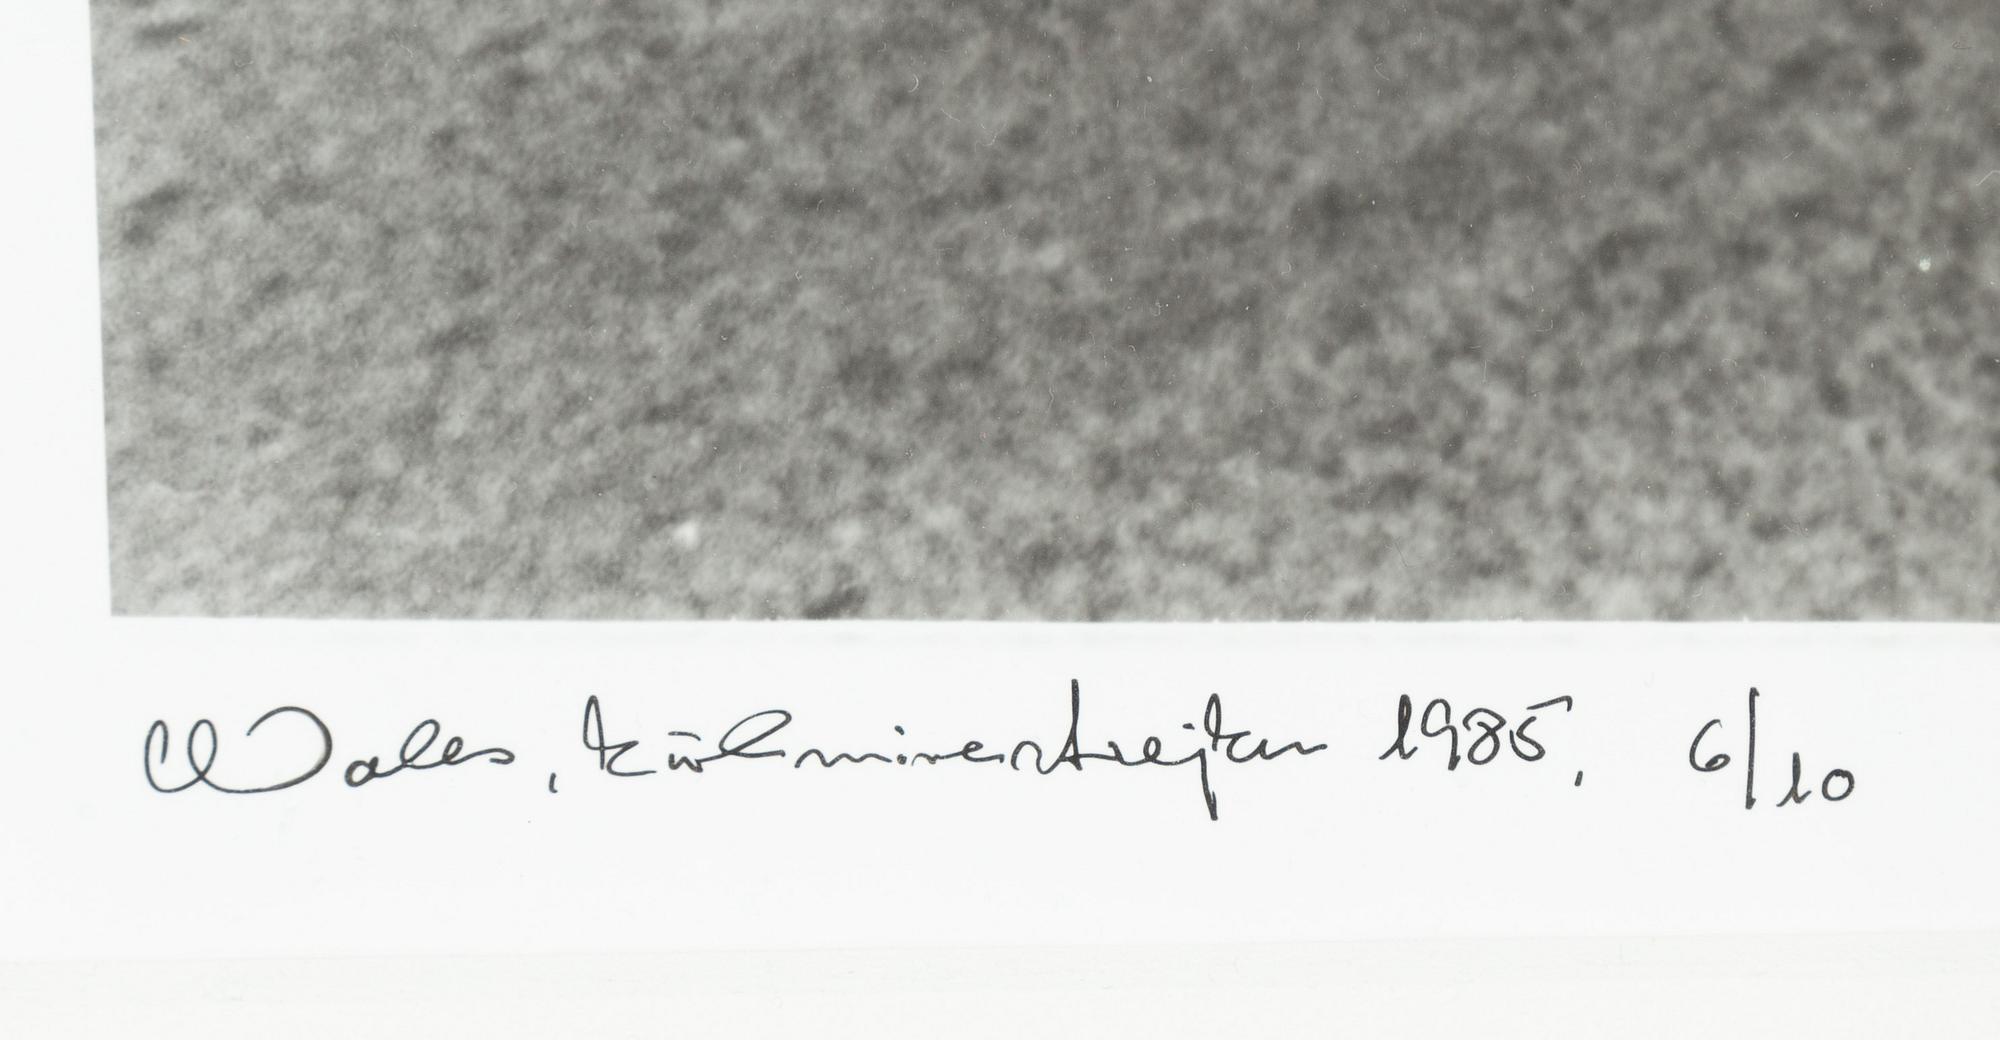 Wales, kulminestrejken 1985, 6/10